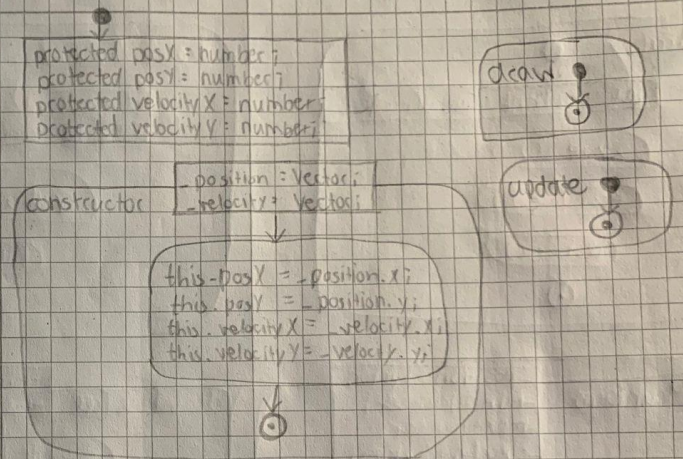 protected posX = number;
protected posY = number;
protected velocityX = number;
protected velocityY = number;
draw
update
constructor
_position = Vector;
_velocity = Vector;
this.posX = _position.x;
this.posY = _position.y;
this.velocityX = _velocity.x;
this.velocityY = _velocity.y;